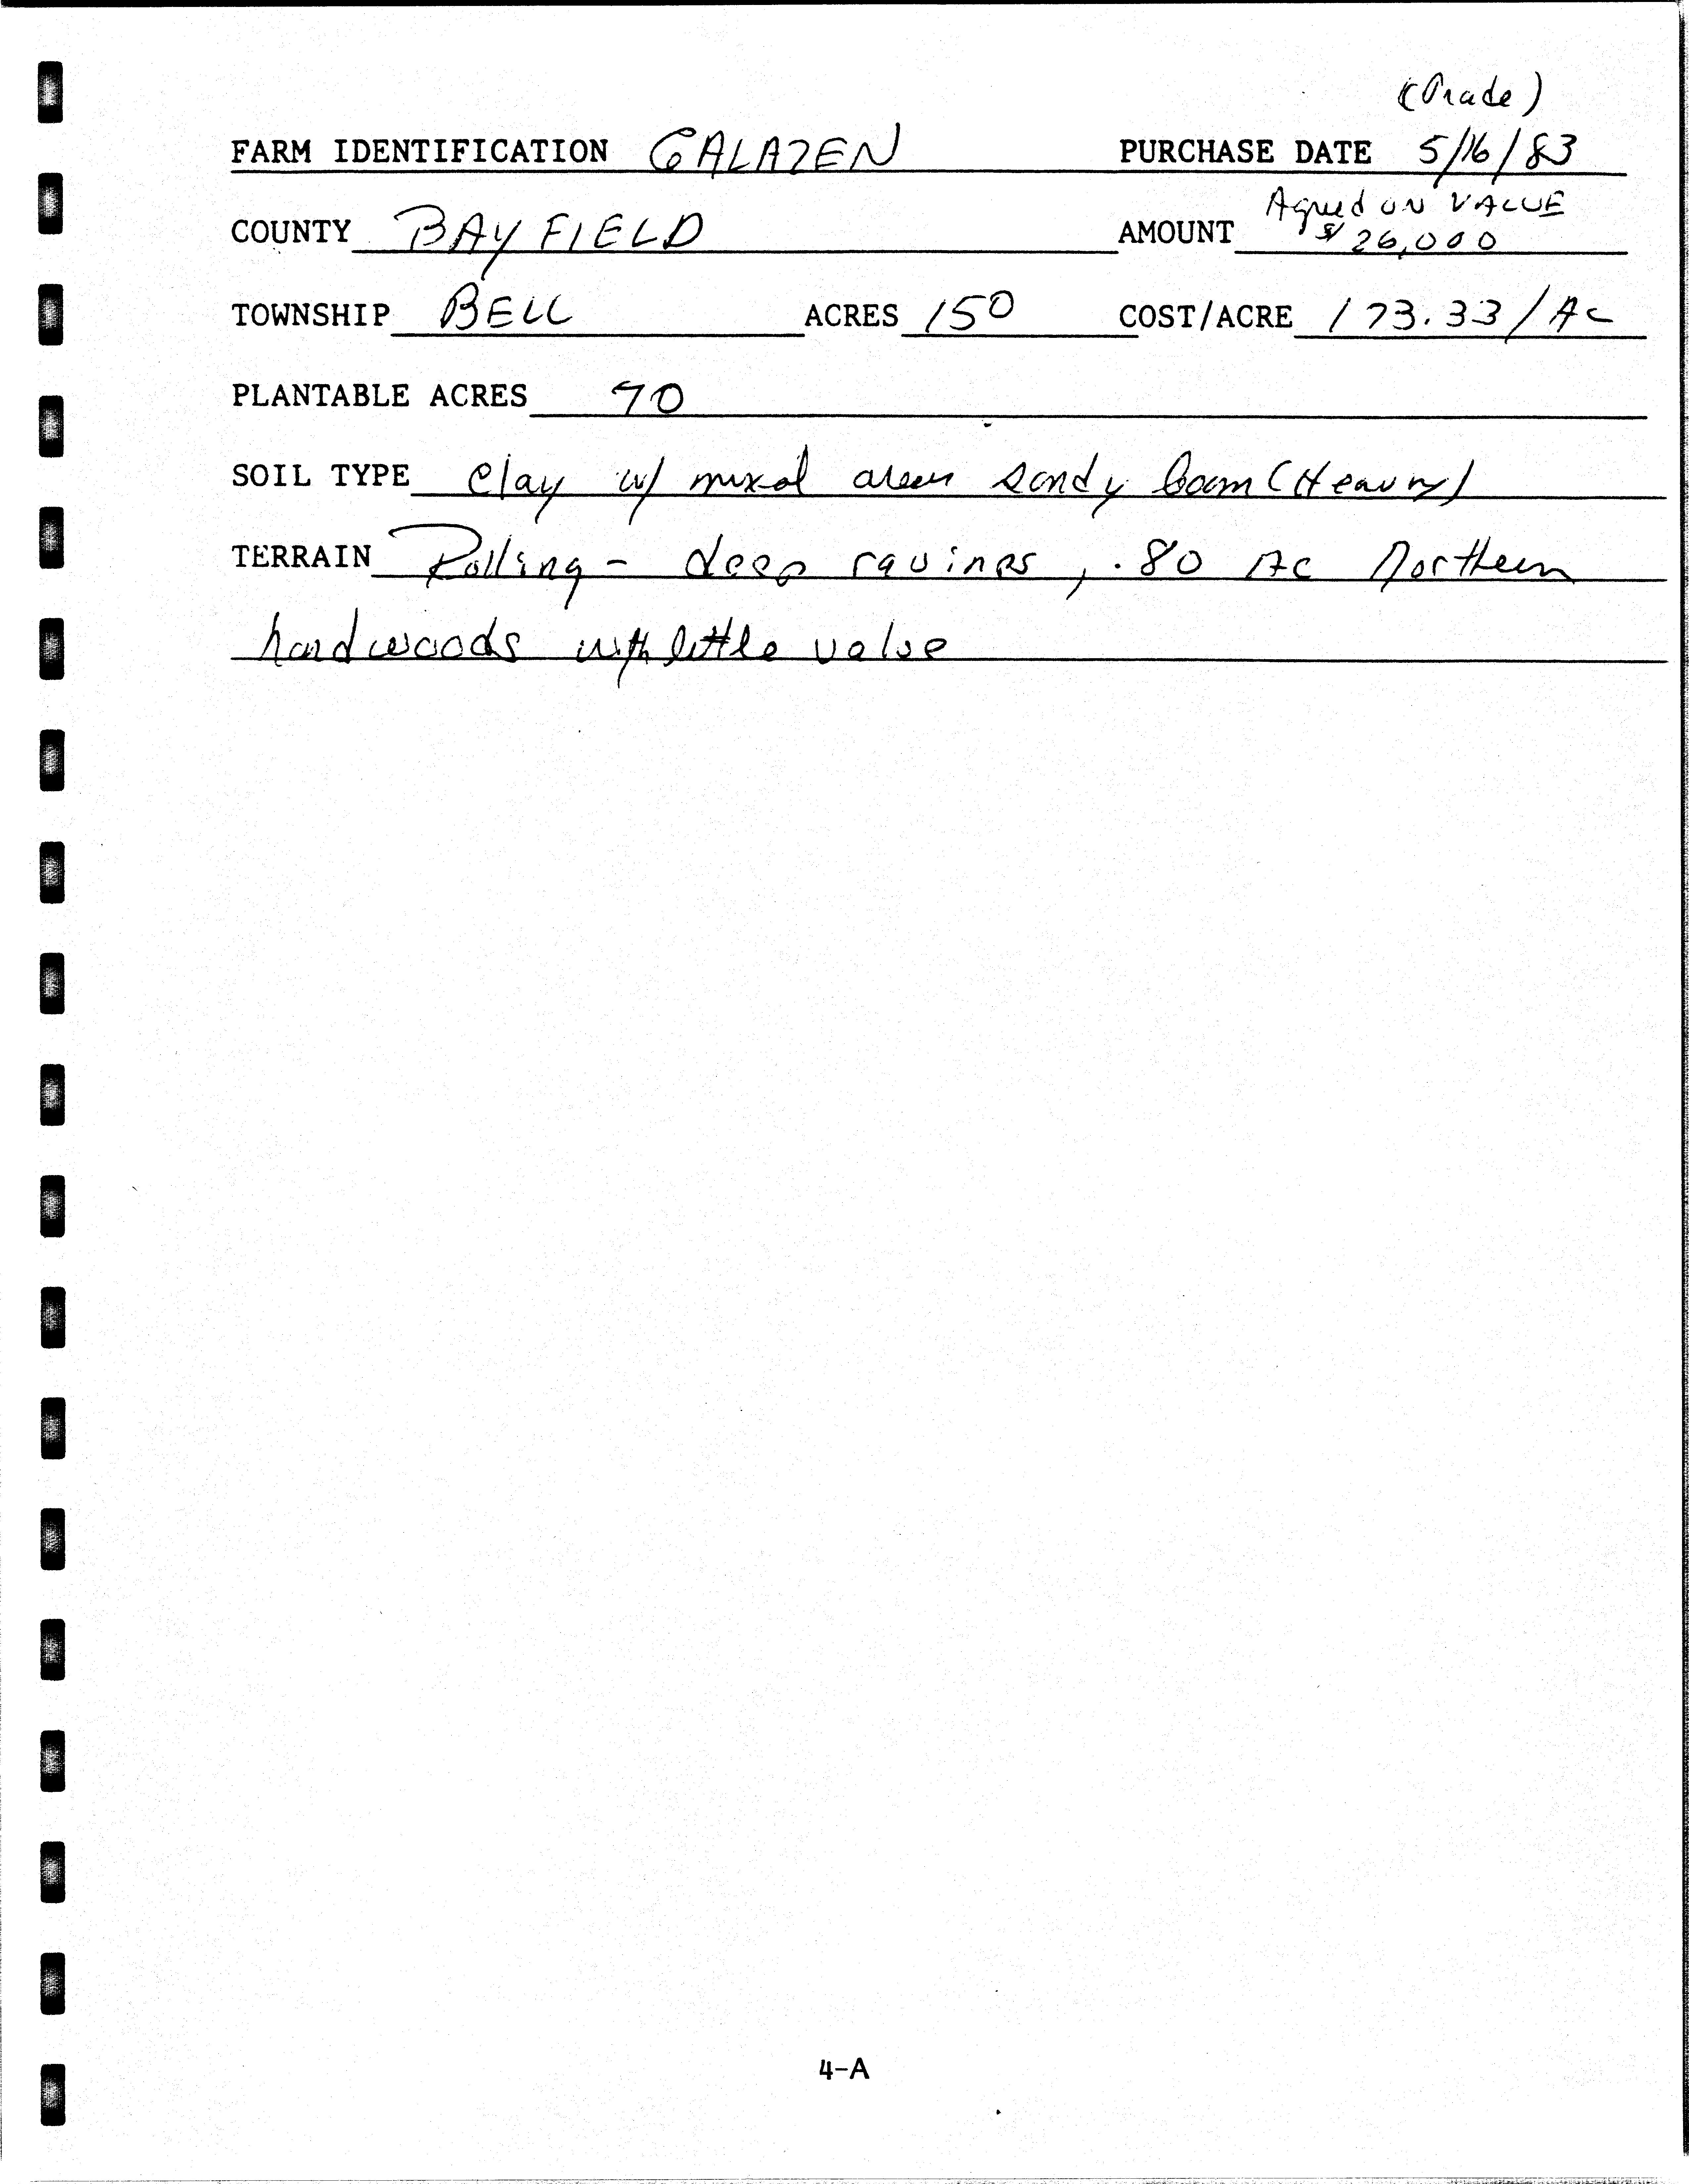 (Trade)
FARM IDENTIFICATION GALAZEN PURCHASE DATE 5/16/83
COUNTY BAYFIELD AMOUNT Agreed on VALUE $26,000
TOWNSHIP BELL ACRES 150 COST/ACRE 173.33/Ac
PLANTABLE ACRES 70
SOIL TYPE Clay w/ mixed areas sandy loam (Heavy)
TERRAIN Rolling - deep ravines, .80 Ac Northern
hardwoods with little value
4-A